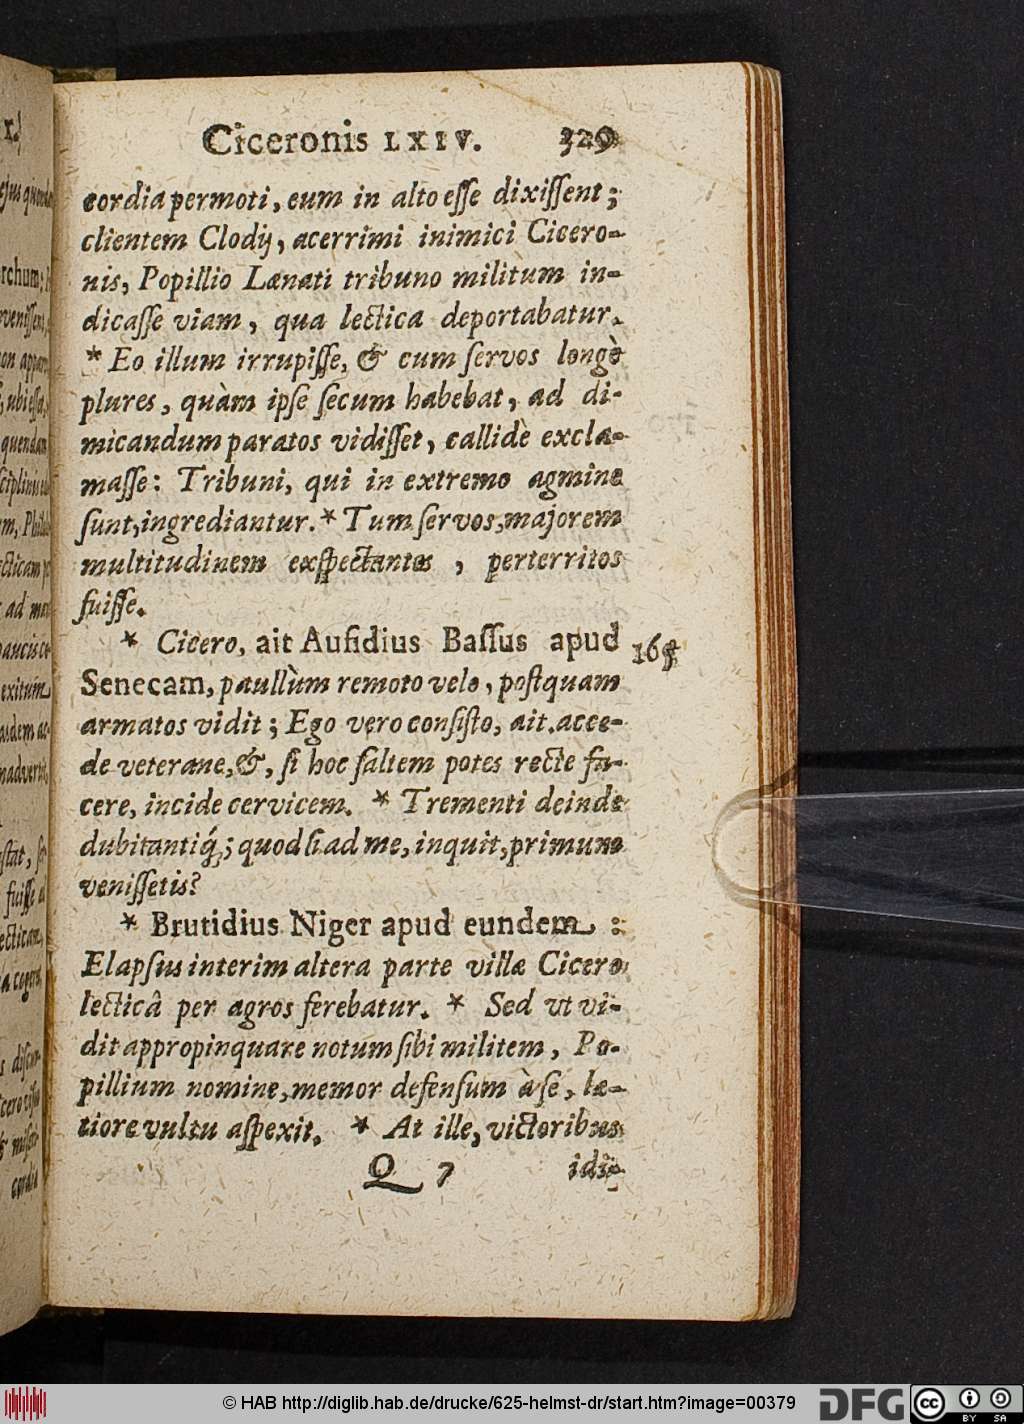 Ciceronis LXIV. 329
cordia permoti, eum in alto eſſe dixiſſent;
clientem Clodij, acerrimi inimici Cicero-
nis, Popillio Lænati tribuno militum in-
dicaſſe viam, qua lectica deportabatur.
* Eo illum irrupiſſe, & cum ſervos longè
plures, quàm ipſe ſecum habebat, ad di-
micandum paratos vidiſſet, callidè excla-
maſſe: Tribuni, qui in extremo agmine
ſunt, ingrediantur. * Tum ſervos, majorem
multitudinem exſpectantes, perterritos
fuiſſe.
* Cicero, ait Aufidius Baſſus apud 165
Senecam, paullùm remoto velo, poſtquam
armatos vidit; Ego vero conſiſto, ait. acce-
de veterane, &, ſi hoc ſaltem potes recte fa-
cere, incide cervicem. * Trementi deinde
dubitantiq́; quod ſi ad me, inquit, primum
veniſſetis?
* Brutidius Niger apud eundem :
Elapſus interim altera parte villæ Cicero
lecticâ per agros ferebatur. * Sed vt vi-
dit appropinquare notum ſibi militem, Po-
pillium nomine, memor defenſum à ſe, læ-
tiore vultu aſpexit. * At ille, victoribus
Q 7 idip-
ejus quondam
rchum;
veniſſent,
ubi eſſa,
quendam
ſciplinis
em, Philo
ecticam
ad ma
paucis
exitum
nadvertit,
ſtat,
fuiſſe
ecticam,
cordia
© HAB http://diglib.hab.de/drucke/625-helmst-dr/start.htm?image=00379
DFG
cc
BY SA